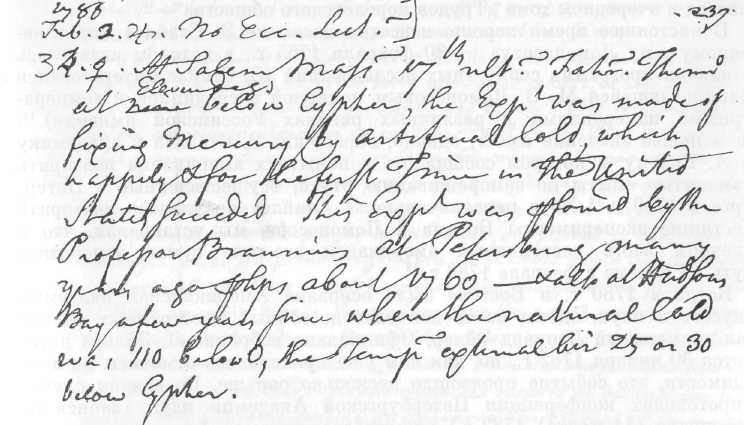 1788
Feb. 2. 4h No Ecc Lect. - 237
at Eleven below Cypher, the Expt was made of
fixing Mercury by artificial Cold which
happily & for the first Time in the United
States succeeded This Expt was pformed by the
Professor Brawn is at Petersburg many
years ago phps about 1760 — & also at Hudsons
Bay a few years since when the natural Cold
was 110 below, the Temp external air 25 or 30
below Cypher.